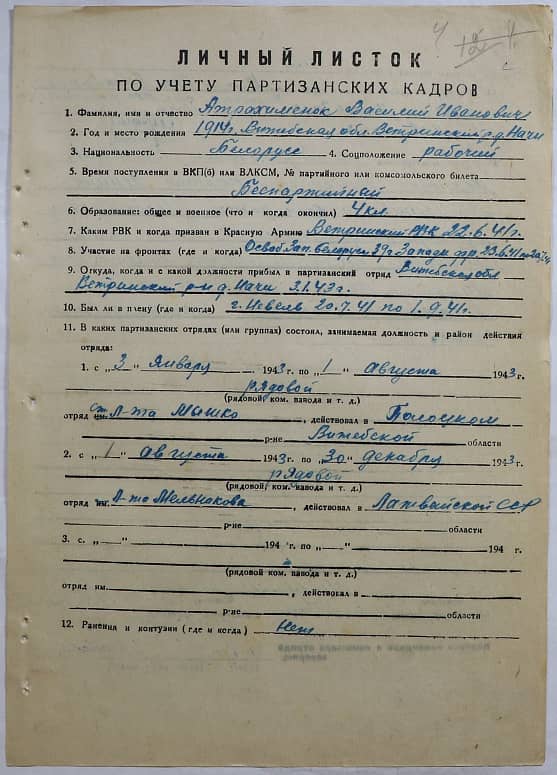 ЛИЧНЫЙ ЛИСТОК
ПО УЧЕТУ ПАРТИЗАНСКИХ КАДРОВ
1. Фамилия, имя и отчество Атрохименок Василий Иванович
2. Год и место рождения 1914г. Витебская обл. Ветринский р. д. Начи
3. Национальность Белорусс 4. Соцположение рабочий
5. Время поступления в ВКП(б) или ВЛКСМ, № партийного или комсомольского билета
Беспартийный
6. Образование: общее и военное (что и когда окончил) 4 кл.
7. Каким РВК и когда призван в Красную Армию Ветринский РВК 22.6.41г.
8. Участие на фронтах (где и когда) Освоб. Зап. беларуси 39г. Западн. фр. 23.6.41
9. Откуда, когда и с какой должности прибыл в партизанский отряд Витебская обл
Ветринский р-н д. Начи 3.1.43г.
10. Был ли в плену (где и когда) г. Невель 20.7.41 по 1.9.41г.
11. В каких партизанских отрядах (или группах) состоял, занимаемая должность и район действия
отряда:
1. с „3" Января 1943г. по „1" августа 1943г.
рядовой
(рядовой ком. взвода и т. д.)
отряд Л-та Мышко, действовал в Полоцком
р-не Витебской области
2. с „1" августа 1943г по „30" декабря 1943г.
рядовой
(рядовой, ком. взвода и т. д.)
отряд им. Л-та Мельнакова, действовал в Латвийской ССР
р-не области
3. с „ " 194 г. по „ " 194 г.
(рядовой ком. взвода и т. д.)
отряд им. , действовал в
р-не области
12. Ранения и контузии (где и когда) Нет